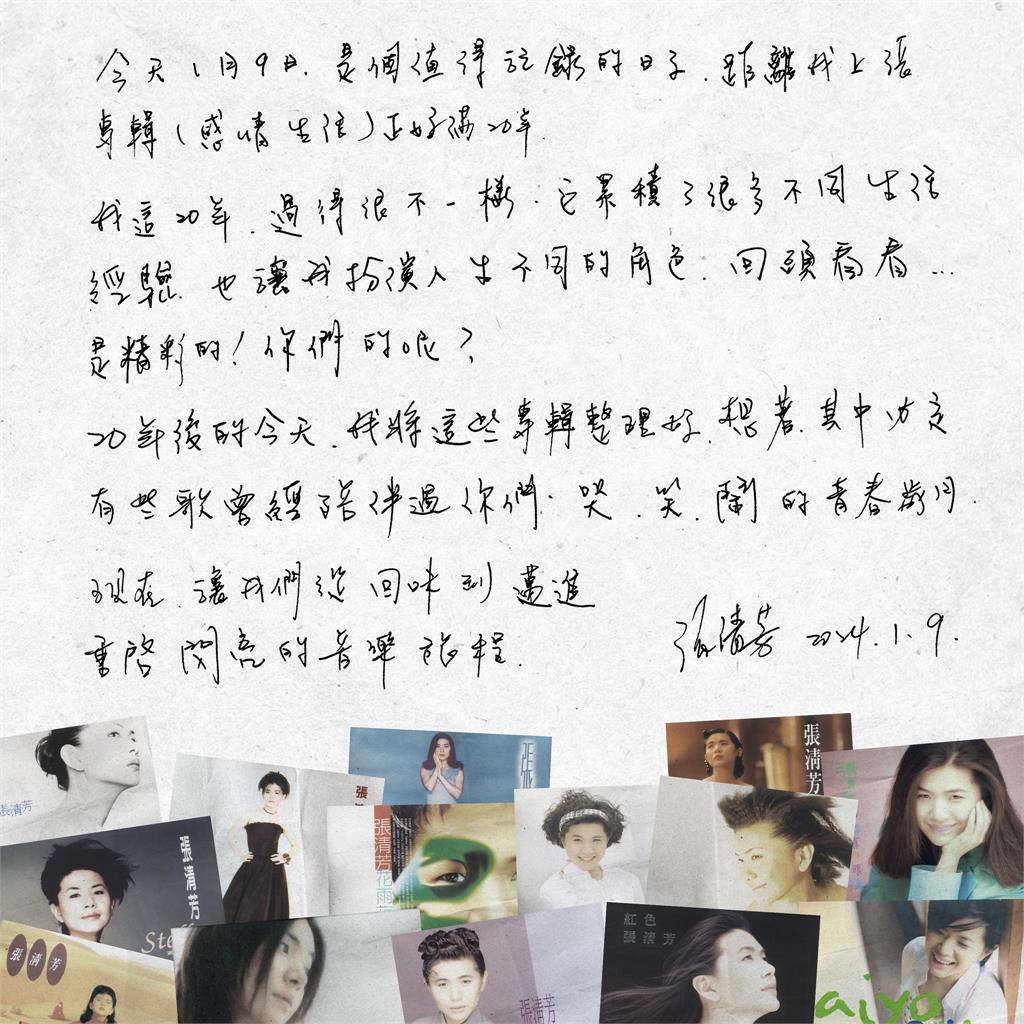 今天1月9日.是個值得記錄的日子.距離我上張
專輯(感情生活)正好滿20年.
我這20年.過得很不一樣.它累積了很多不同生活
經驗.也讓我扮演人生不同的角色.回頭看看...
是精彩的!你們的呢?
20年後的今天.我將這些專輯整理好.想著.其中功定
有些歌曾經陪伴過你們.哭.笑.鬧的青春歲月.
現在.讓我們從回味到邁進
重啓閃亮的音樂旅程.
張清芳 2024.1.9.
張清芳
張清芳
張
張
張清芳
張清芳
花雨
紅色
張清芳
張清芳
張清芳
aiyo